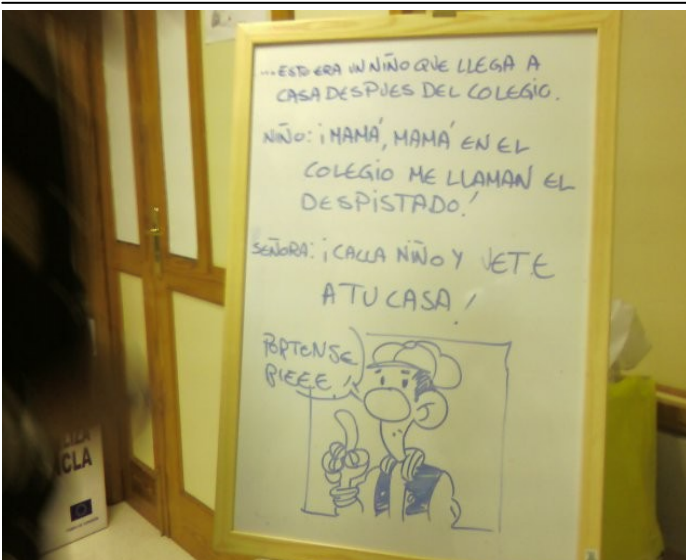 ...ESTO ERA UN NIÑO QUE LLEGA A
CASA DESPUES DEL COLEGIO.
NIÑO: ¡MAMÁ, MAMÁ EN EL
COLEGIO ME LLAMAN EL
DESPISTADO!
SEÑORA: ¡CALLA NIÑO Y VETE
A TU CASA!
PORTENSE
BIEEE!
CLA